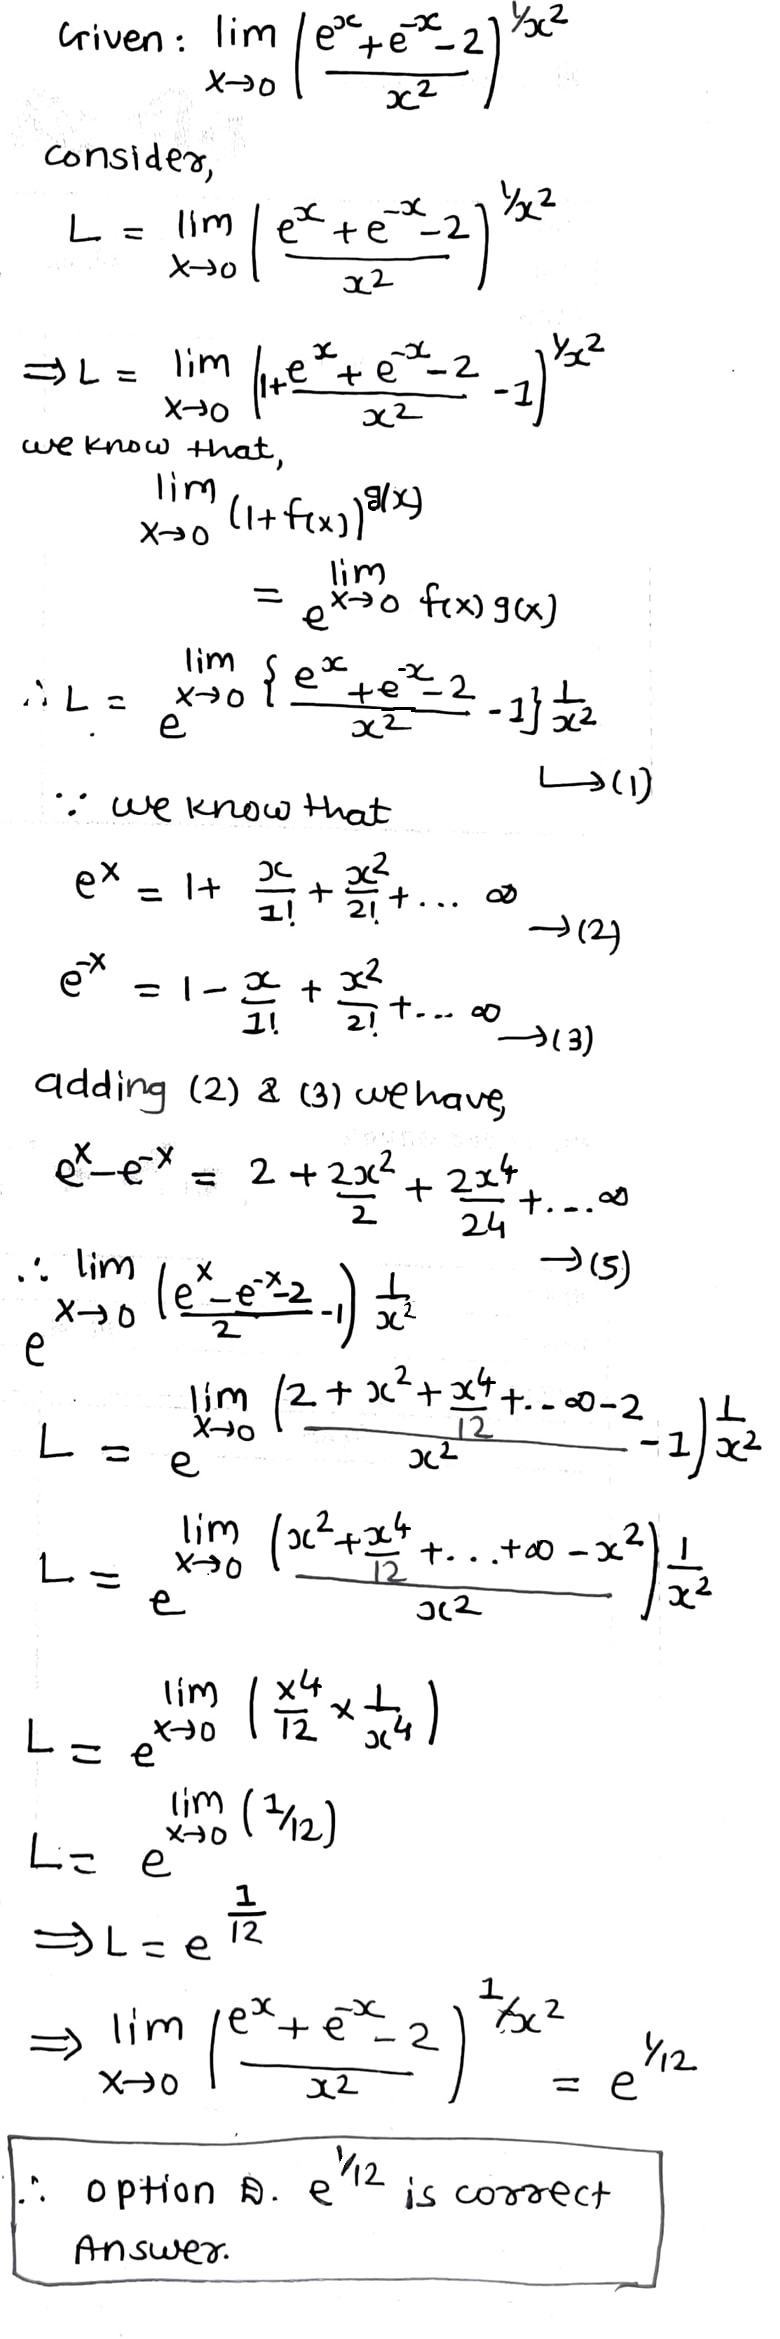 Given: lim x→0 ((e^x + e^-x - 2)/x^2)^1/x^2
consider,
L = lim x→0 ((e^x + e^-x - 2)/x^2)^1/x^2
⇒ L = lim x→0 (1 + (e^x + e^-x - 2)/x^2 - 1)^1/x^2
we know that,
lim x→0 (1 + f(x))^g(x)
= e^lim x→0 f(x) g(x)
∴ L = e^lim x→0 {(e^x + e^-x - 2)/x^2 - 1} 1/x^2
↳ (1)
∵ we know that
e^x = 1 + x/1! + x^2/2! + ... ∞ → (2)
e^-x = 1 - x/1! + x^2/2! + ... ∞ → (3)
adding (2) & (3) we have,
e^x - e^-x = 2 + 2x^2/2 + 2x^4/24 + .... ∞
→ (5)
∴ e^lim x→0 ((e^x - e^-x - 2)/2 - 1) 1/x^2
L = e^lim x→0 ((2 + x^2 + x^4/12 + .. ∞ - 2)/x^2 - 1) 1/x^2
L = e^lim x→0 ((x^2 + x^4/12 + ... + ∞ - x^2)/x^2) 1/x^2
L = e^lim x→0 (x^4/12 × 1/x^4)
L = e^lim x→0 (1/12)
⇒ L = e^1/12
⇒ lim x→0 ((e^x + e^-x - 2)/x^2)^1/x^2 = e^1/12
∴ option D. e^1/12 is correct
Answer.